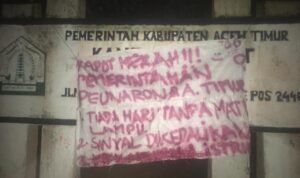 PEMERINTAH KABUPATEN ACEH TIMUR
RAPOT MERAH!!!
PEMERINTAHAN
PEUNARON A. TIMUR
1 TIADA HARI TANPA MAT
LAMPU
2 SINYAL DIKEBALIKAN
POS 2446